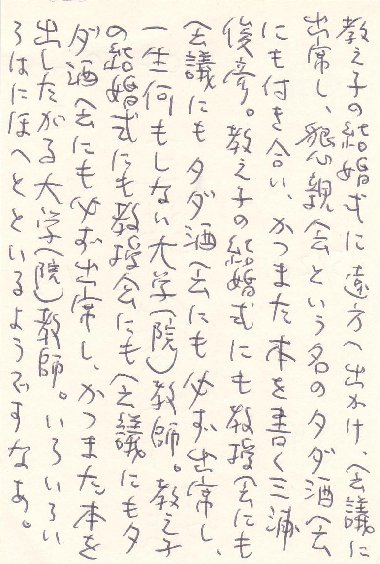 教え子の結婚式に遠方へ出かけ、会議に
出席し、懇親会という名のタダ酒会
にも付き合い、かつまた本を書く三浦
俊彦。教え子の結婚式にも教授会にも
会議にもタダ酒会にも必ず出席し、
一生何もしない大学(院)教師。教え子
の結婚式にも教授会にも会議にもタ
ダ酒会にも必ず出席し、かつまた本を
出したがる大学(院)教師。いろいろい
ろはにほへとといるようですなあ。